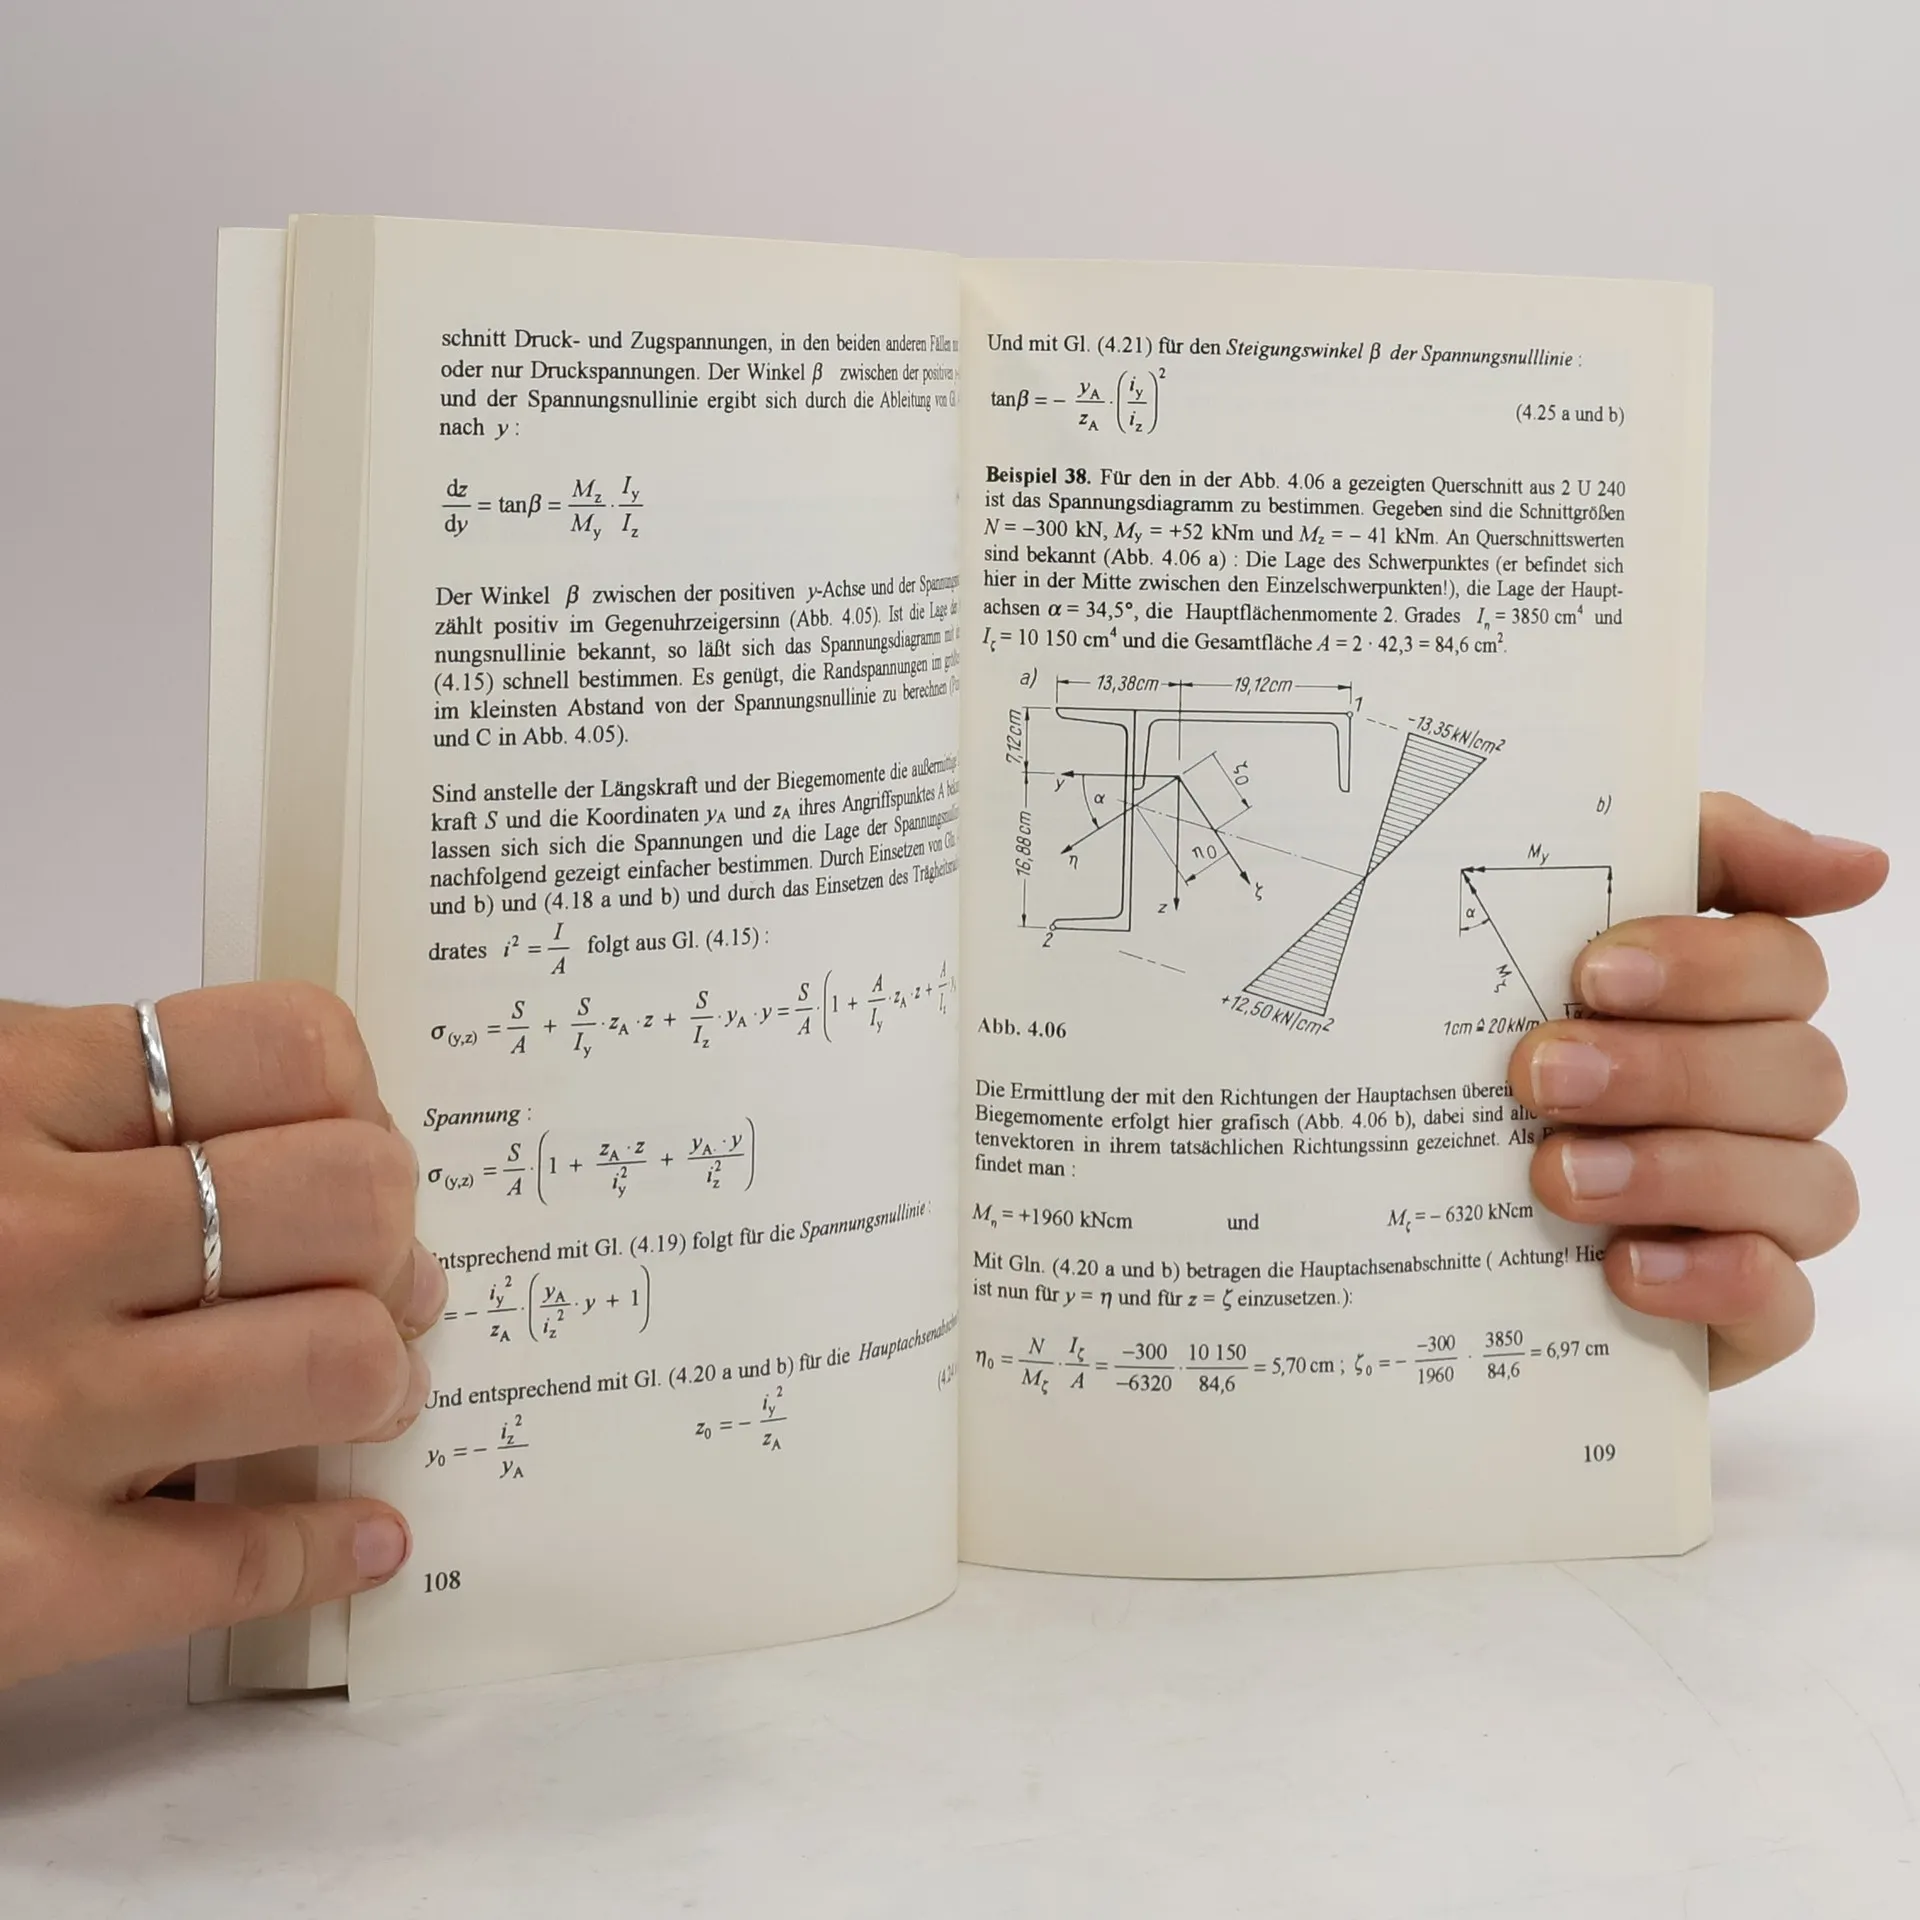 schnitt Druck- und Zugspannungen, in den beiden anderen Fällen
oder nur Druckspannungen. Der Winkel β zwischen der positiven
und der Spannungsnullinie ergibt sich durch die Ableitung von
nach y :
dz/dy = tanβ = M_z/M_y · I_y/I_z
Der Winkel β zwischen der positiven y-Achse und der
zählt positiv im Gegenuhrzeigersinn (Abb. 4.05). Ist die Lage
nungsnullinie bekannt, so läßt sich das Spannungsdiagramm mit
(4.15) schnell bestimmen. Es genügt, die Randspannungen im
im kleinsten Abstand von der Spannungsnullinie zu berechnen
und C in Abb. 4.05).
Sind anstelle der Längskraft und der Biegemomente die
kraft S und die Koordinaten y_A und z_A ihres Angriffspunktes A
lassen sich sich die Spannungen und die Lage der
nachfolgend gezeigt einfacher bestimmen. Durch Einsetzen von Gln
und b) und (4.18 a und b) und durch das Einsetzen des
drates i² = I/A folgt aus Gl. (4.15) :
σ(y,z) = S/A + S/I_y · z_A · z + S/I_z · y_A · y = S/A · (1 + A/I_y · z_A · z +
Spannung :
σ(y,z) = S/A · (1 + z_A · z/i_y² + y_A · y/i_z²)
ntsprechend mit Gl. (4.19) folgt für die Spannungsnullinie :
= − i_y²/z_A · (y_A/i_z² · y + 1)
Und entsprechend mit Gl. (4.20 a und b) für die
y₀ = − i_z²/y_A z₀ = − i_y²/z_A
108
Und mit Gl. (4.21) für den Steigungswinkel β der Spannungsnulllinie :
tanβ = − y_A/z_A · (i_y/i_z)²
(4.25 a und b)
Beispiel 38. Für den in der Abb. 4.06 a gezeigten Querschnitt aus 2 U 240
ist das Spannungsdiagramm zu bestimmen. Gegeben sind die Schnittgrößen
N = −300 kN, M_y = +52 kNm und M_z = − 41 kNm. An Querschnittswerten
sind bekannt (Abb. 4.06 a) : Die Lage des Schwerpunktes (er befindet sich
hier in der Mitte zwischen den Einzelschwerpunkten!), die Lage der Haupt-
achsen α = 34,5°, die Hauptflächenmomente 2. Grades I_η = 3850 cm⁴ und
I_ζ = 10 150 cm⁴ und die Gesamtfläche A = 2 · 42,3 = 84,6 cm².
a) 13,38cm 19,12cm
1
-13,35 kN/cm²
7,12cm
y
α
ζ0
b)
16,88cm
η
η0
ζ
z
2
M_y
α
M_ζ
+12,50 kN/cm²
1cm ≙ 20kNm
Abb. 4.06
Die Ermittlung der mit den Richtungen der Hauptachsen
Biegemomente erfolgt hier grafisch (Abb. 4.06 b), dabei sind
tenvektoren in ihrem tatsächlichen Richtungssinn gezeichnet. Als
findet man :
M_η = +1960 kNcm und M_ζ = − 6320 kNcm
Mit Gln. (4.20 a und b) betragen die Hauptachsenabschnitte ( Achtung! Hie
ist nun für y = η und für z = ζ einzusetzen.):
η₀ = N/M_ζ · I_ζ/A = −300/−6320 · 10 150/84,6 = 5,70 cm ; ζ₀ = − −300/1960 · 3850/84,6 = 6,97 cm
109